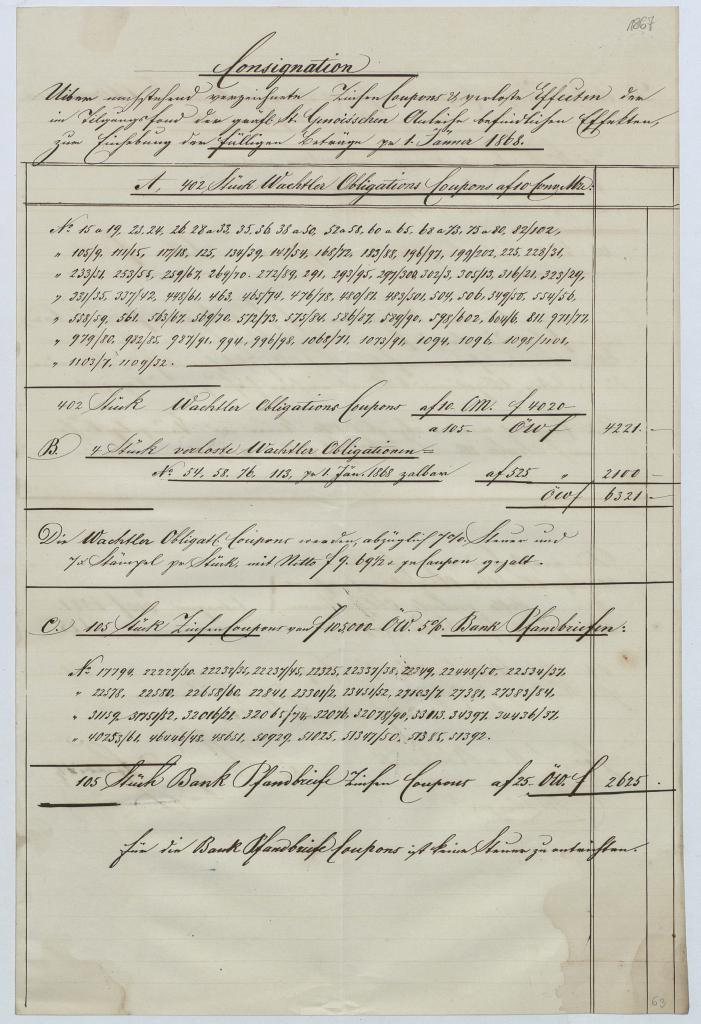 1867
Consignation
Ueber nachstehend verzeichnete Zinsen Coupons & verloste Effecten der
im Tilgungsfond der gräfl. St. Genoisischen Anleihe befindlichen Effekten,
zur Einhebung der fälligen Beträge pr 1. Jänner 1868.
A, 402 Stück Wachtler Obligations Coupons a f 10 Conv. Mze:
No 15 a 19, 23, 24, 26, 28 a 33, 35, 36, 38 a 50, 52 a 58, 60 a 65, 68 a 73, 75 a 80, 82/102,
" 105/9, 111/15, 117/18, 125, 134/39, 141/54, 168/72, 183/88, 196/97, 199/202, 225, 228/31,
" 233/51, 253/55, 259/67, 269/70, 272/89, 291, 293/95, 297/300, 302/3, 305/13, 316/21, 323/29,
" 331/35, 337/42, 448/61, 463, 465/74, 476/78, 480/81, 483/501, 504, 506, 549/50, 554/56,
" 558/59, 561, 563/67, 569/70, 572/73, 575/84, 586/87, 589/90, 598/602, 604/6, 811, 971/77,
" 979/80, 982/85, 987/91, 994, 996/98, 1068/71, 1073/91, 1094, 1096, 1098/1101,
" 1103/7, 1109/32.
402 Stück Wachtler Obligations Coupons a f 10 CM. f 4020
a 105 ÖW f 4221 . –
B. 4 Stück verloste Wachtler Obligationen
No 54, 58, 76, 113, pr 1. Jän. 1868 zalbar a f 525 " 2100 –
ÖW f 6321 –
Die Wachtler Obligat. Coupons werden, abzüglich 7% Steuer und
7x Stämpel pr Stück, mit Netto f 9. 69½ x pr Coupon gezalt.
C. 105 Stück Zinsen Coupons von f 105,000 ÖW. 5% Bank Pfandbriefen:
No 17794, 22227/30, 22232/35, 22237/45, 22325, 22337/38, 22349, 22448/50, 22534/37,
" 22578, 22580, 22658/60, 22841, 23301/2, 23451/52, 27103/7, 27381, 27383/84,
" 31159, 31751/52, 32016/21, 32065/74, 32076, 32078/90, 33013, 34397, 34436/37,
" 40253/61, 46446/48, 48651, 50929, 51025, 51347/50, 51385, 51392.
105 Stück Bank Pfandbriefe Zinsen Coupons a f 25 ÖW. f 2625 .
für die Bank Pfandbriefe Coupons ist keine Steuer zu entrichten.
63